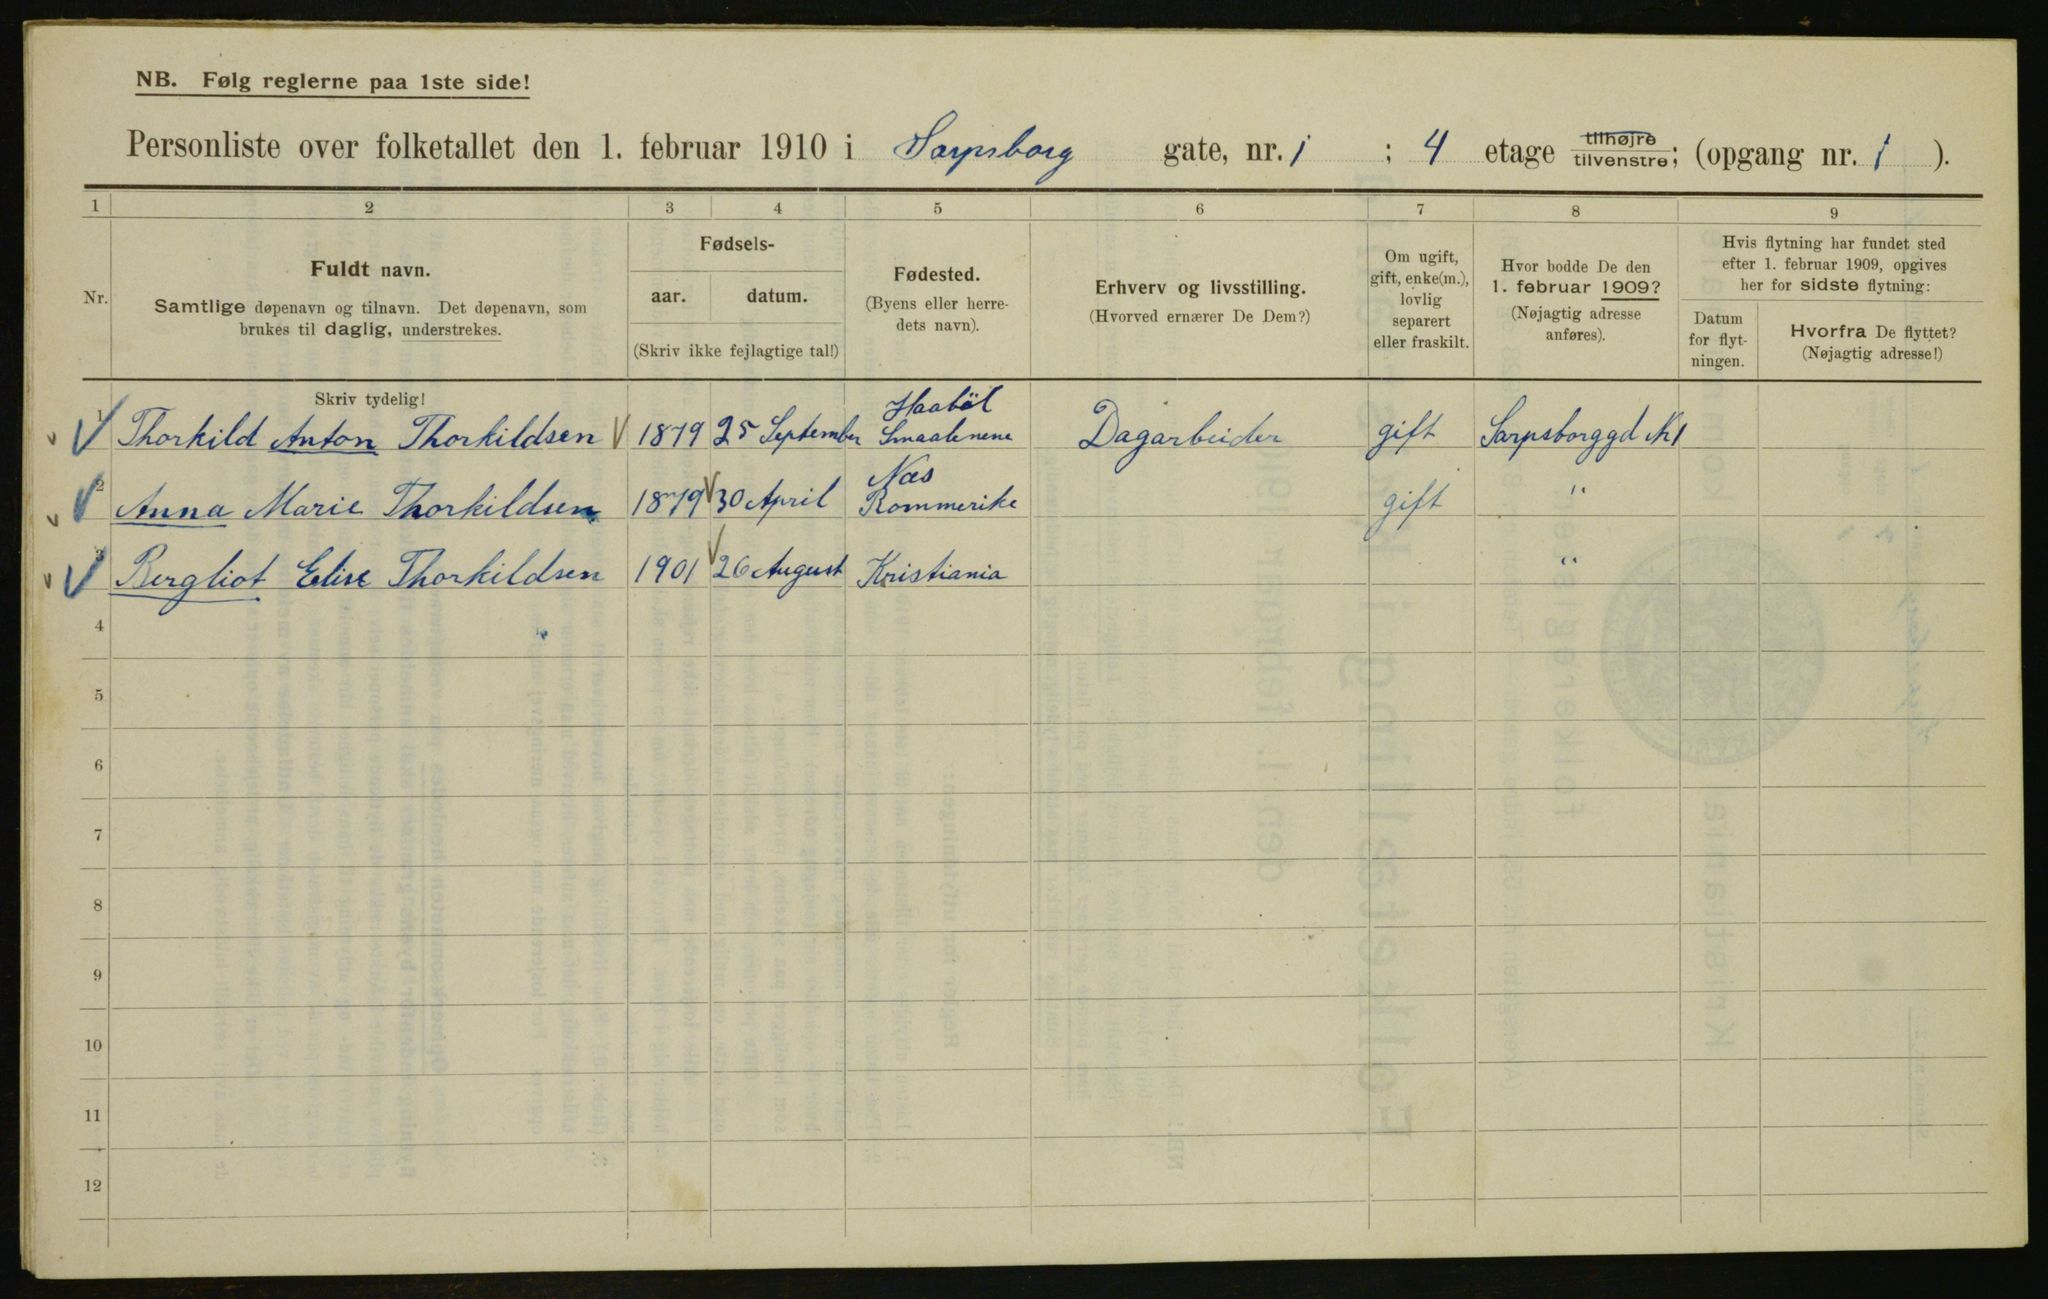 NB. Følg reglerne paa 1ste side!
Personliste over folketallet den 1. februar 1910 i Sarpsborg gate, nr. 1 ; 4 etage tilhøjre tilvenstre; (opgang nr. 1 ).
1 2 3 4 5 6 7 8 9
Nr.
Fuldt navn.
Samtlige døpenavn og tilnavn. Det døpenavn, som
brukes til daglig, understrekes.
Fødsels-
aar. datum.
(Skriv ikke fejlagtige tal!)
Fødested.
(Byens eller herre-
dets navn).
Erhverv og livsstilling.
(Hvorved ernærer De Dem?)
Om ugift,
gift, enke(m.),
lovlig
separert
eller fraskilt.
Hvor bodde De den
1. februar 1909?
(Nøjagtig adresse
anføres).
Hvis flytning har fundet sted
efter 1. februar 1909, opgives
her for sidste flytning:
Datum
for flyt-
ningen.
Hvorfra De flyttet?
(Nøjagtig adresse!)
Skriv tydelig!
Haabøl
1 Thorkild Anton Thorkildsen 1879 25 September Smaalenene Dagarbeider gift Sarpsborggd No 1
Næs
2 Anna Marie Thorkildsen 1879 30 April Rommerike gift "
3 Bergliot Elise Thorkildsen 1901 26 August Kristiania "
4
5
6
7
8
9
10
11
12